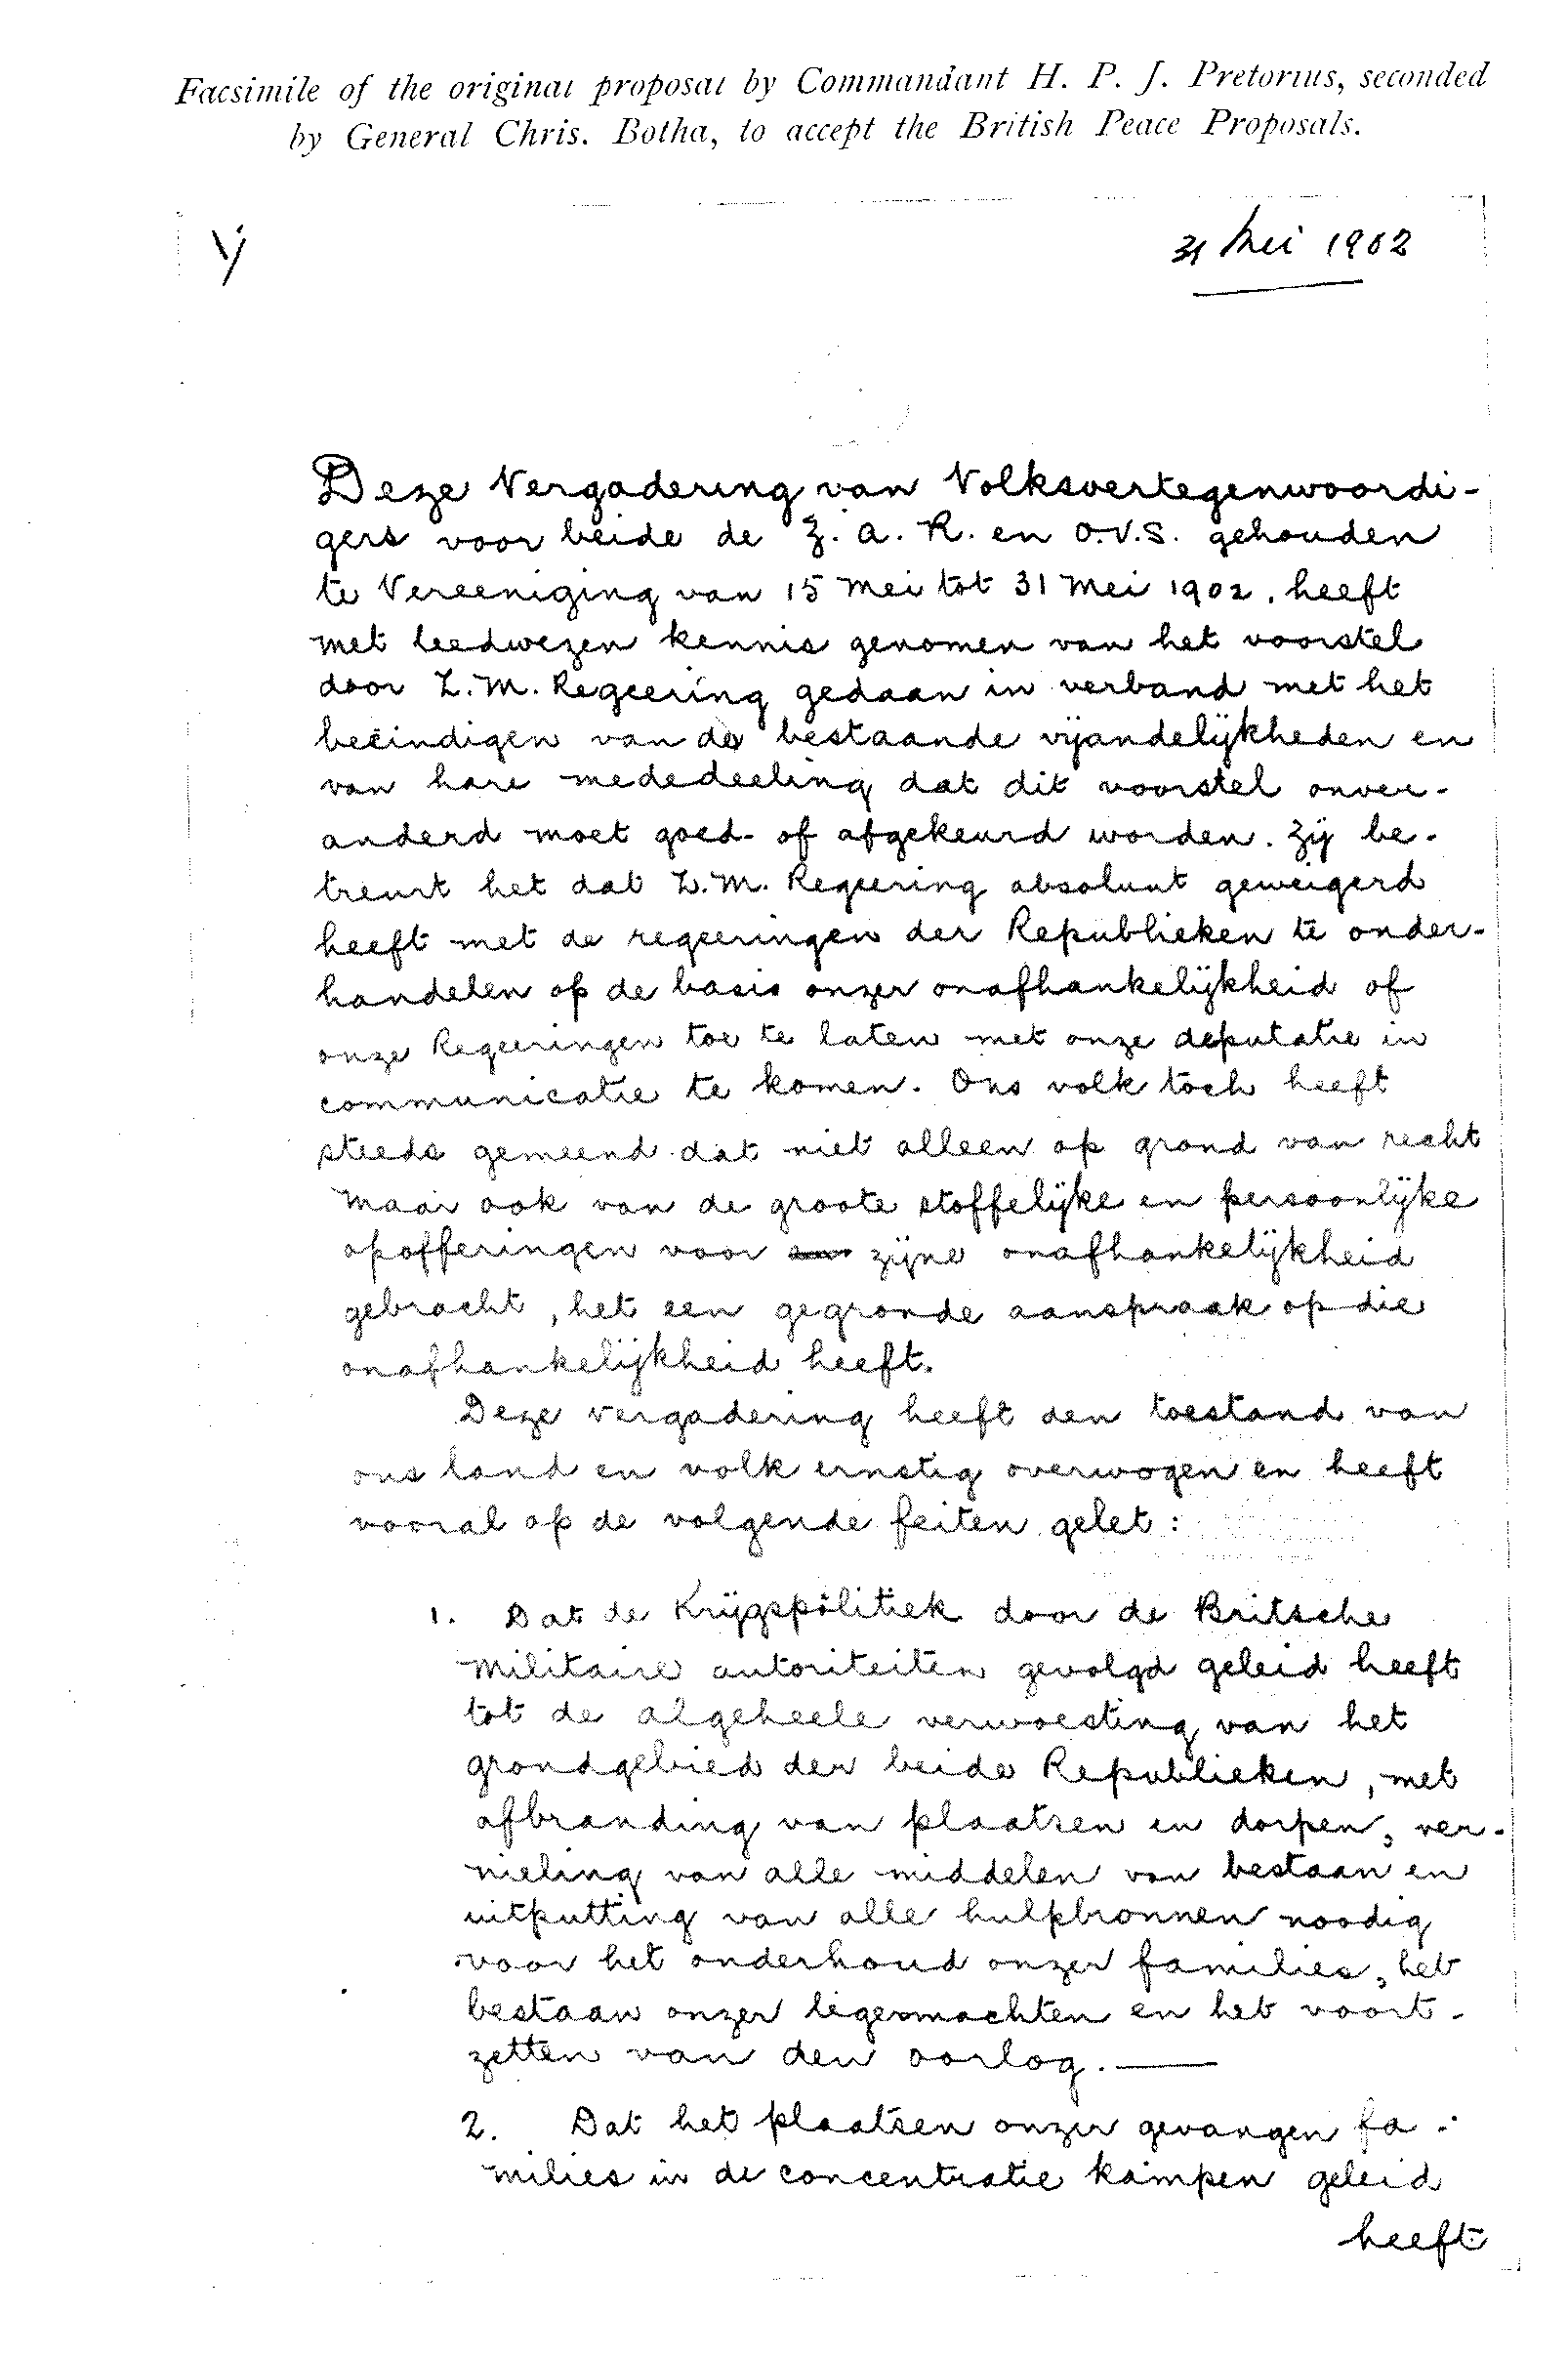 Facsimile of the original proposal by Commandant H. P. J. Pretorius, seconded
by General Chris. Botha, to accept the British Peace Proposals.
31 Mei 1902
Deze Vergadering van Volksvertegenwoordi-
gers voor beide de Z. A. R. en O.V.S. gehouden
te Vereeniging van 15 Mei tot 31 Mei 1902, heeft
met leedwezen kennis genomen van het voorstel
door Z.M. Regeering gedaan in verband met het
beëindigen van de bestaande vijandelijkheden en
van hare mededeeling dat dit voorstel onver-
anderd moet goed- of afgekeurd worden. Zij be-
treurt het dat Z.M. Regeering absoluut geweigerd
heeft met de regeeringen der Republieken te onder-
handelen op de basis onzer onafhankelijkheid of
onze Regeeringen toe te laten met onze deputatie in
communicatie te komen. Ons volk toch heeft
steeds gemeend dat niet alleen op grond van recht
maar ook van de groote stoffelijke en persoonlijke
opofferingen voor zijne onafhankelijkheid
gebracht, het een gegronde aanspraak op die
onafhankelijkheid heeft.
Deze vergadering heeft den toestand van
ons land en volk ernstig overwogen en heeft
vooral op de volgende feiten gelet:
1. Dat de Krijgspolitiek door de Britsche
militaire autoriteiten gevolgd geleid heeft
tot de algeheele verwoesting van het
grondgebied der beide Republieken, met
afbranding van plaatsen en dorpen, ver-
nieling van alle middelen van bestaan en
uitputting van alle hulpbronnen noodig
voor het onderhoud onzer families, het
bestaan onzer legermachten en het voort-
zetten van den oorlog.—
2. Dat het plaatsen onzer gevangen fa-
milies in de concentratie kampen geleid
heeft